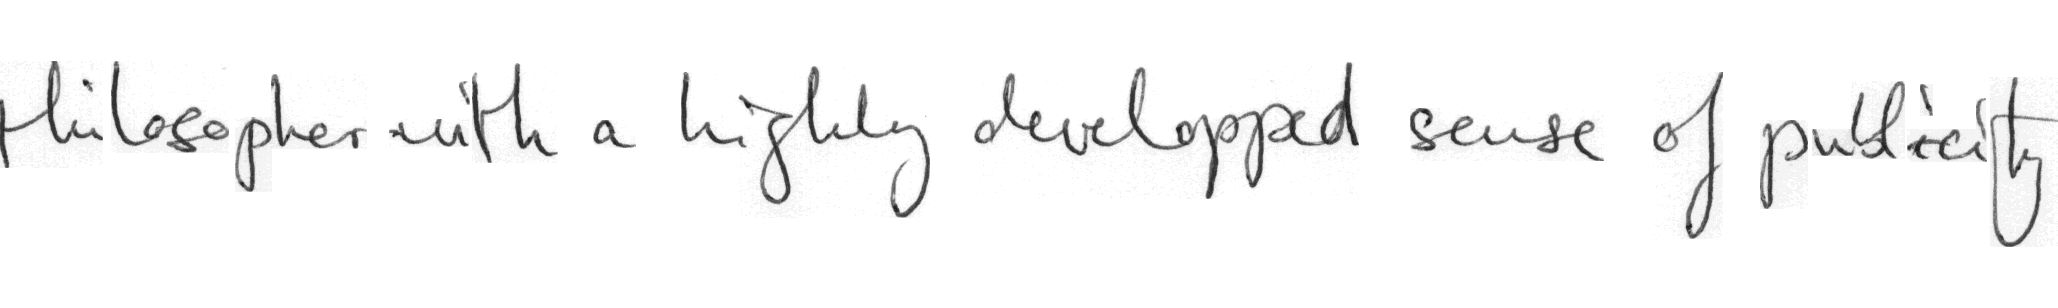 philosopher with a highly developped sense of publicity